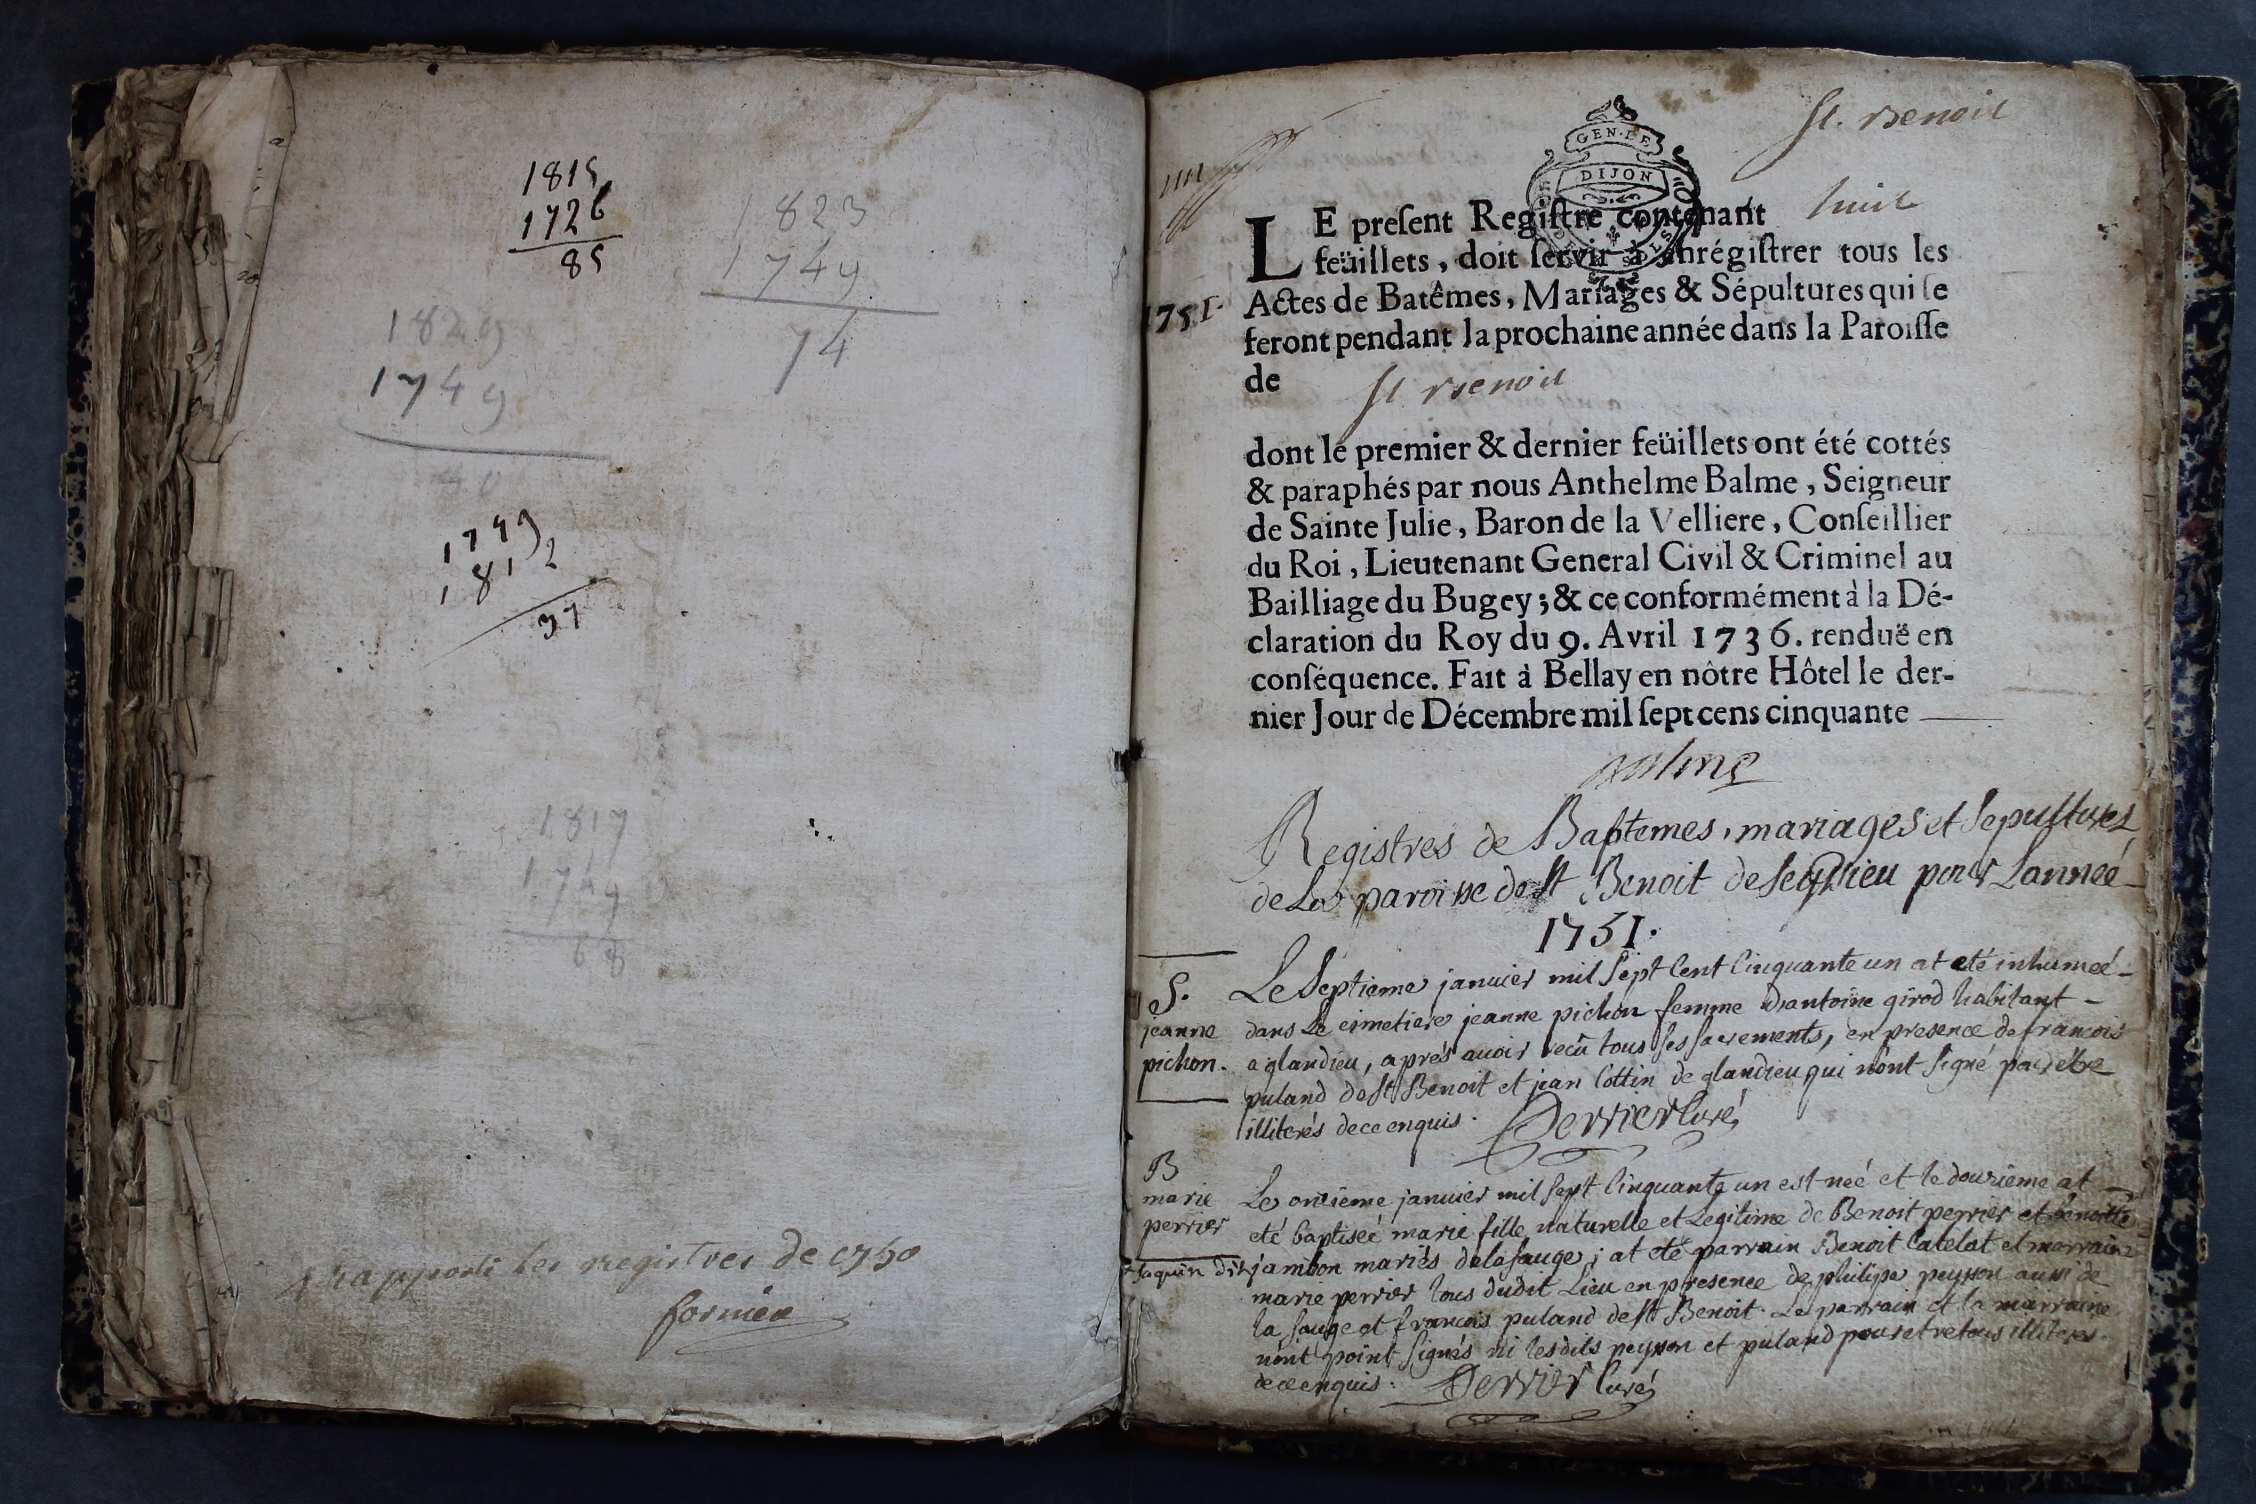 1815
1726
85
1823
1749
74
1829
1749
1749
1812
37
1817
1749
68
rapporté les registres de 1750
St. Benoit
GEN. DE
DIJON
LE preſent Regiſtre contenant huit
feüillets, doit ſervir à enrégiſtrer tous les
1751. Actes de Batêmes, Mariages & Sépultures qui ſe
feront pendant la prochaine année dans la Paroiſſe
de St Benoit
dont le premier & dernier feüillets ont été cottés
& paraphés par nous Anthelme Balme, Seigneur
de Sainte Julie, Baron de la Velliere, Conſeillier
du Roi, Lieutenant General Civil & Criminel au
Bailliage du Bugey; & ce conformément à la Dé-
claration du Roy du 9. Avril 1736. renduë en
conſéquence. Fait à Bellay en nôtre Hôtel le der-
nier Jour de Décembre mil ſept cens cinquante
Balme
Registres de Baptemes, mariages et Sepultures
de La paroisse de St Benoit de Seyssieu pour Lanneé
1751.
S.
jeanne
pichon.
Le Septieme janvier mil Sept Cent Cinquante un at eté inhumeé
dans Le cimetiere jeanne pichon femme d'antoine girod habitant
a glandieu, aprés avoir recû tous ses sacrements, en presence de francois
puland de St Benoit et jean Cottin de glandieu qui n'ont signé pour etre
illiterés de ce enquis. Derrier Curé
B
marie
perrier
Jaquin dit
Le onzieme janvier mil Sept Cinquante un est neé et le douzieme at
eté baptiseé marie fille naturelle et Legitime de Benoit perrier et benoitte
jambon mariés de la sauge; at eté parrain Benoit Catelat et marraine
marie perrier tous dudit Lieu en presence de philipe peysson aussi de
la sauge et francois puland de St Benoit. Le parrain et la marraine
n'ont point signés ni lesdits peysson et puland pour etre tous illiteres
de ce enquis. Derrier Curé